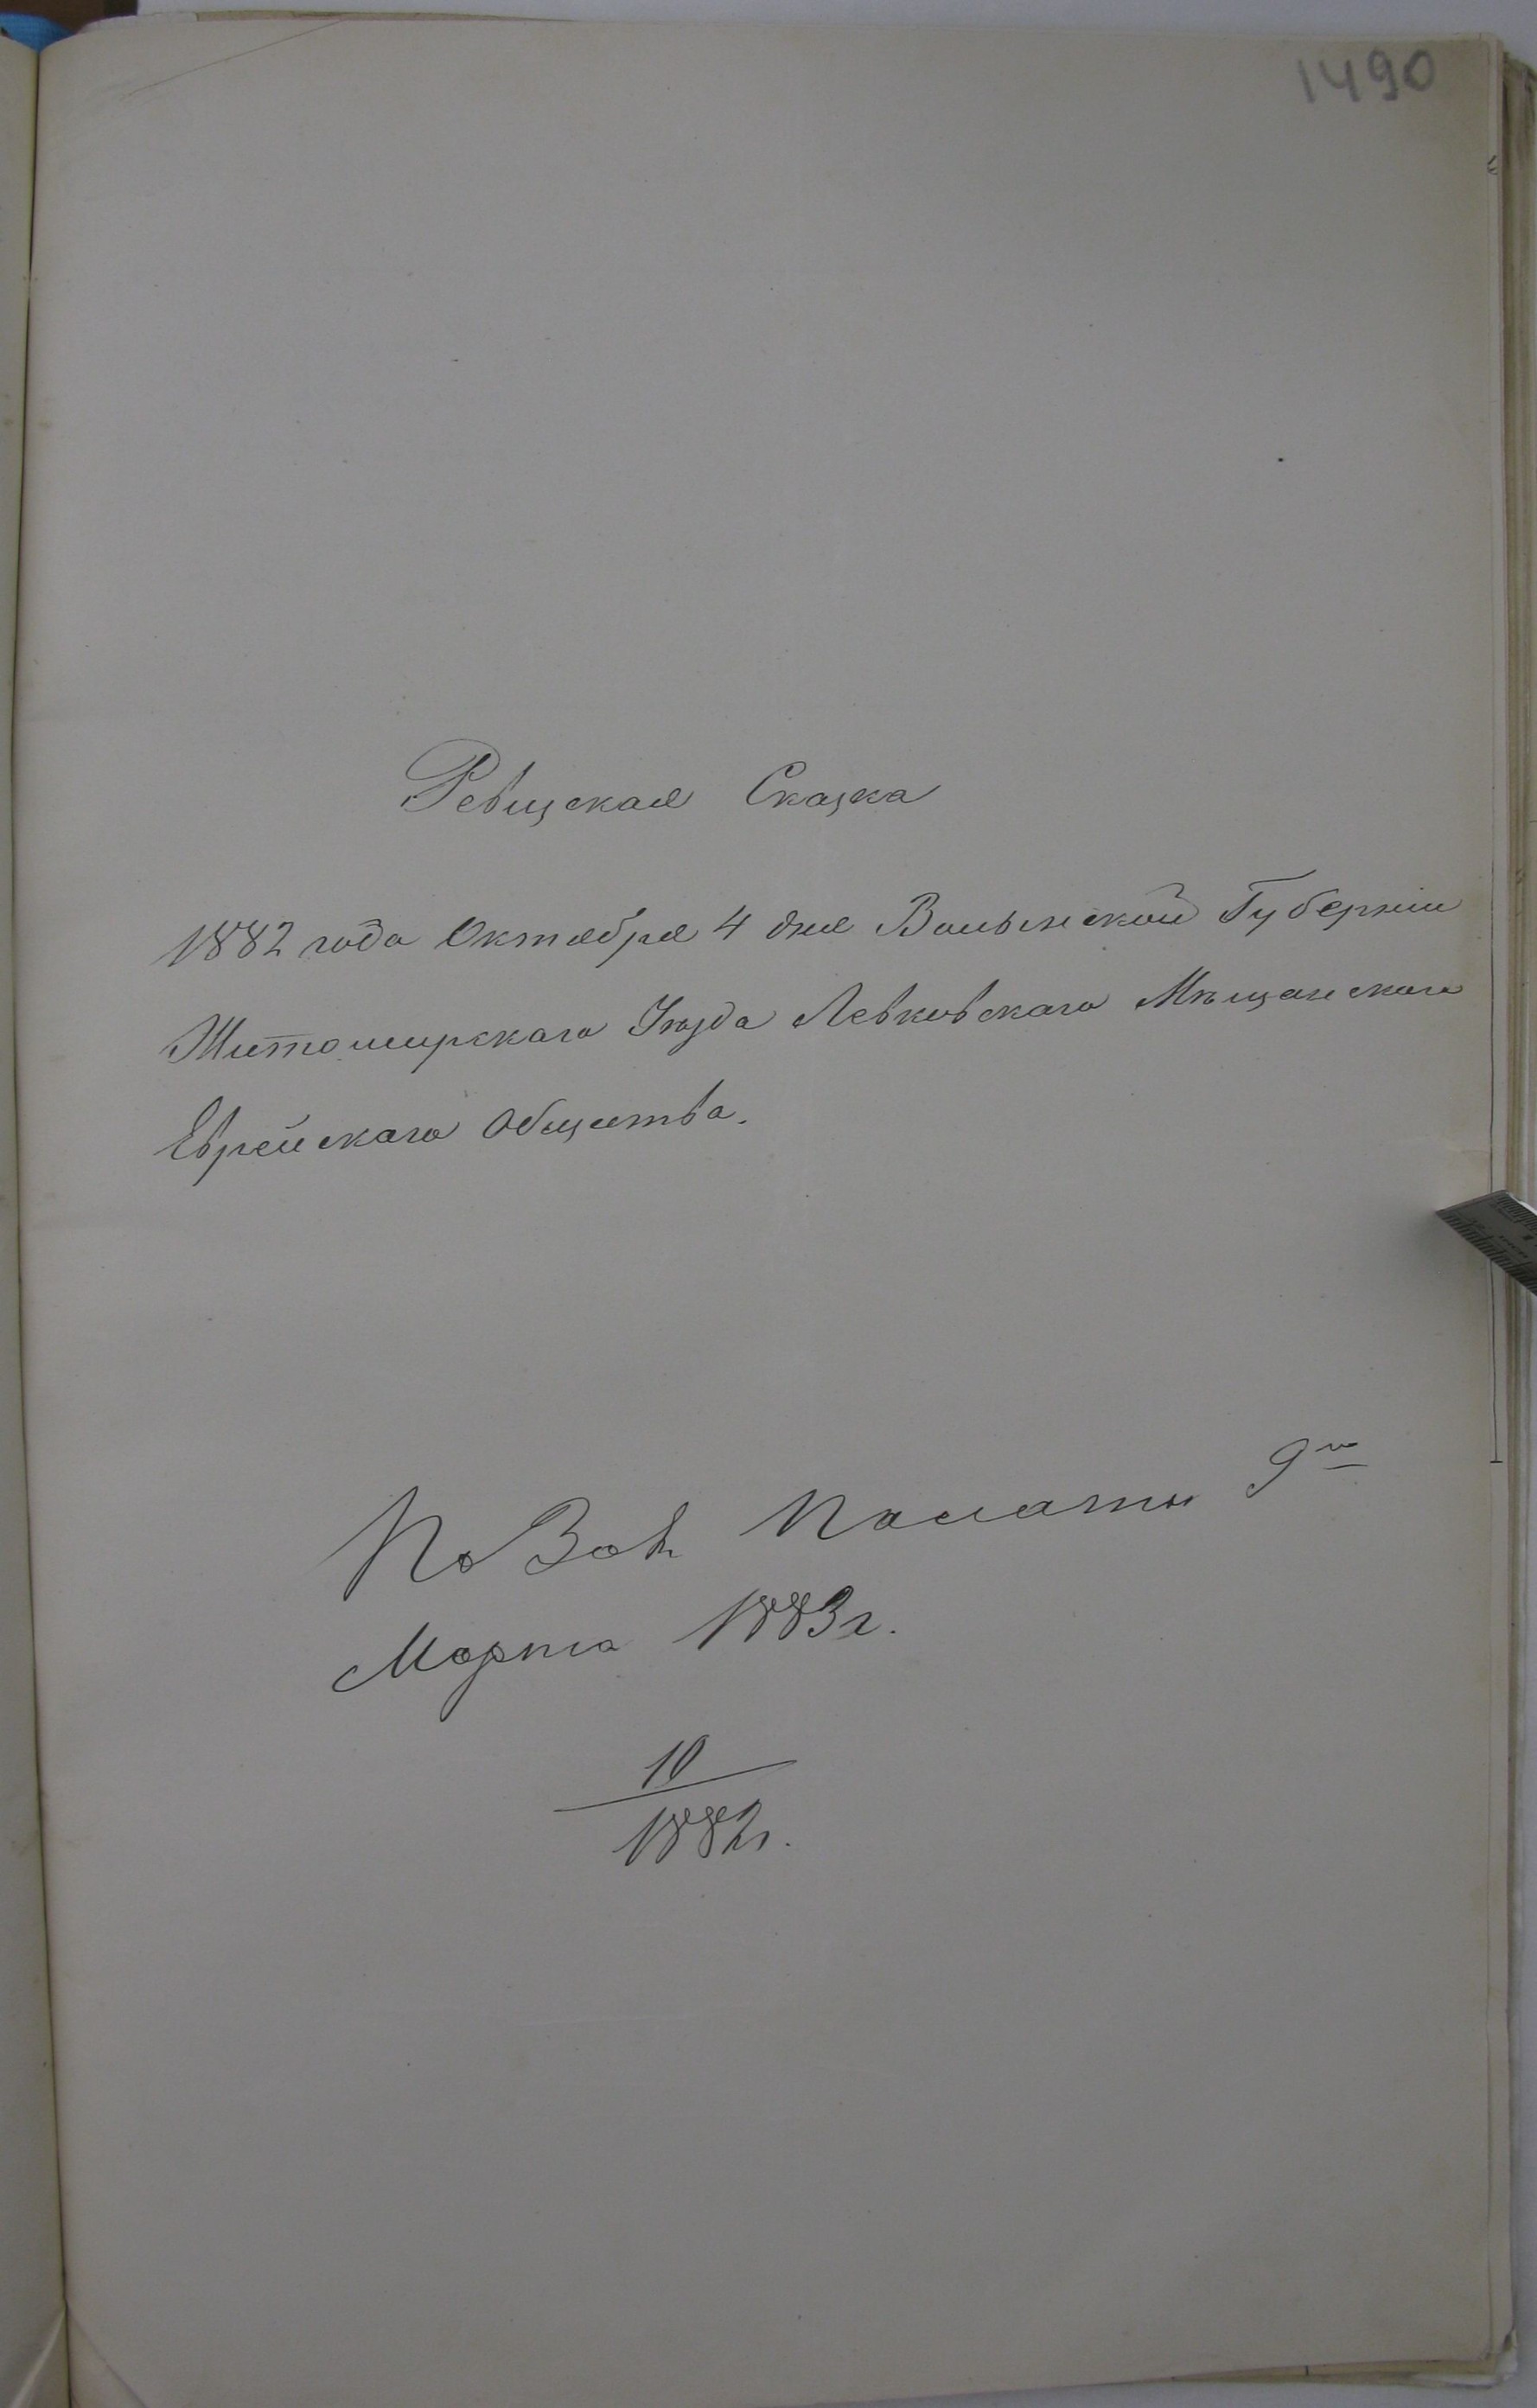 1490
Ревизская Сказка
1882 года Октября 4 дня Волынской Губерніи
Житомирскаго Уѣзда Левковскаго Мѣщанскаго
Еврейскаго Общества.
Палаты 9го
Марта 1883 г.
10
1882 г.